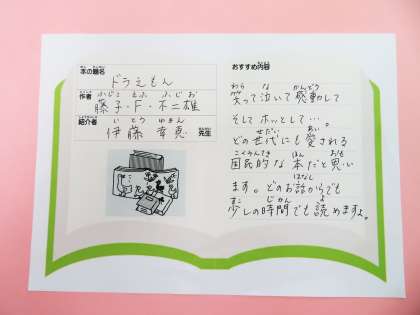 ほん だいめい
本の題名
ドラえもん
さくしゃ
作者
ふじこ えふ ふじお
藤子・F・不二雄
しょうかいしゃ
紹介者
いとう ゆきえ
伊藤 幸恵
せんせい
先生
ないよう
おすすめ内容
わら な かんどう
笑って泣いて感動して
そしてホッとして…。
せだい あい
どの世代にも愛される
こくみんてき ほん おも
国民的な本だと思い
はなし
ます。どのお話からでも
すこ じかん よ
少しの時間でも読めますよ。